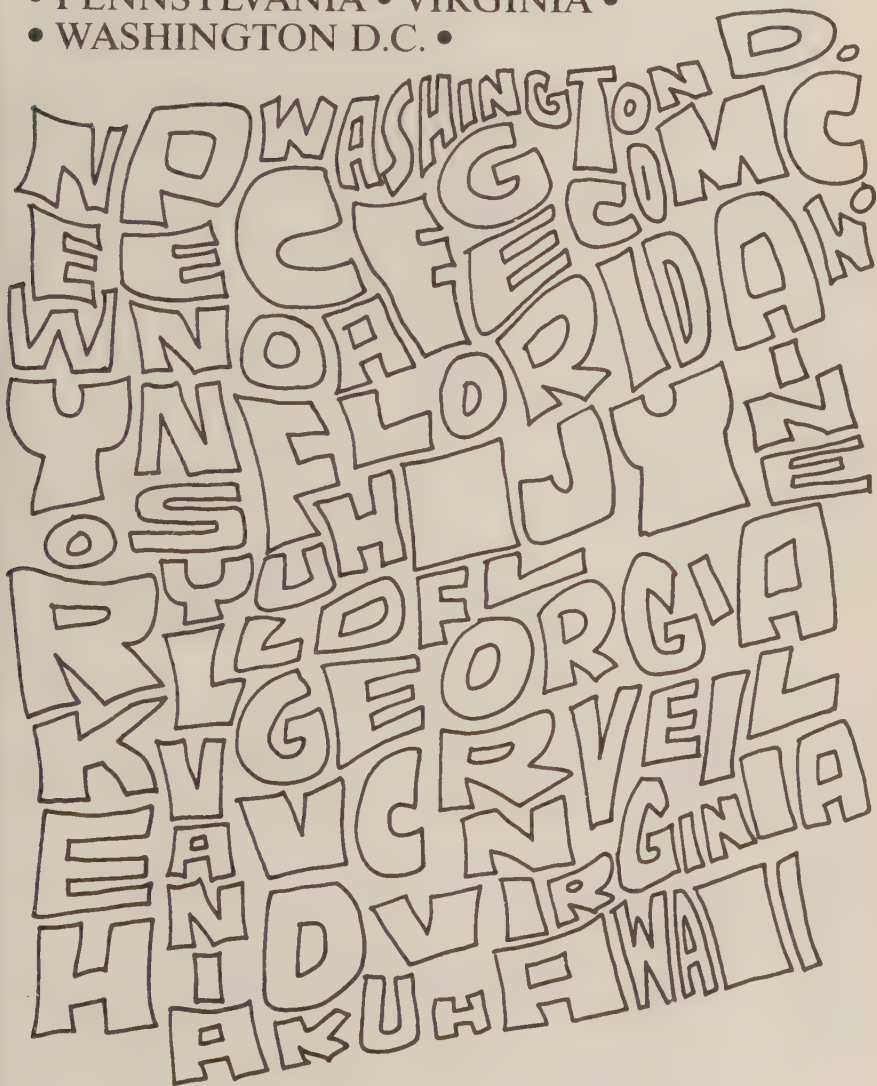 • PENNSYLVANIA • VIRGINIA •
• WASHINGTON D.C. •
N P WASHINGTON D.
C G C O M C.
E E F E N.
W N O A
Y N F L O R I D A I
N
O S H I J Y E
R Y U
Z D F L
L G E O R G I A
K V R V E I L
E A V C N
N D VIRGINIA
H I
A K U HAWAII